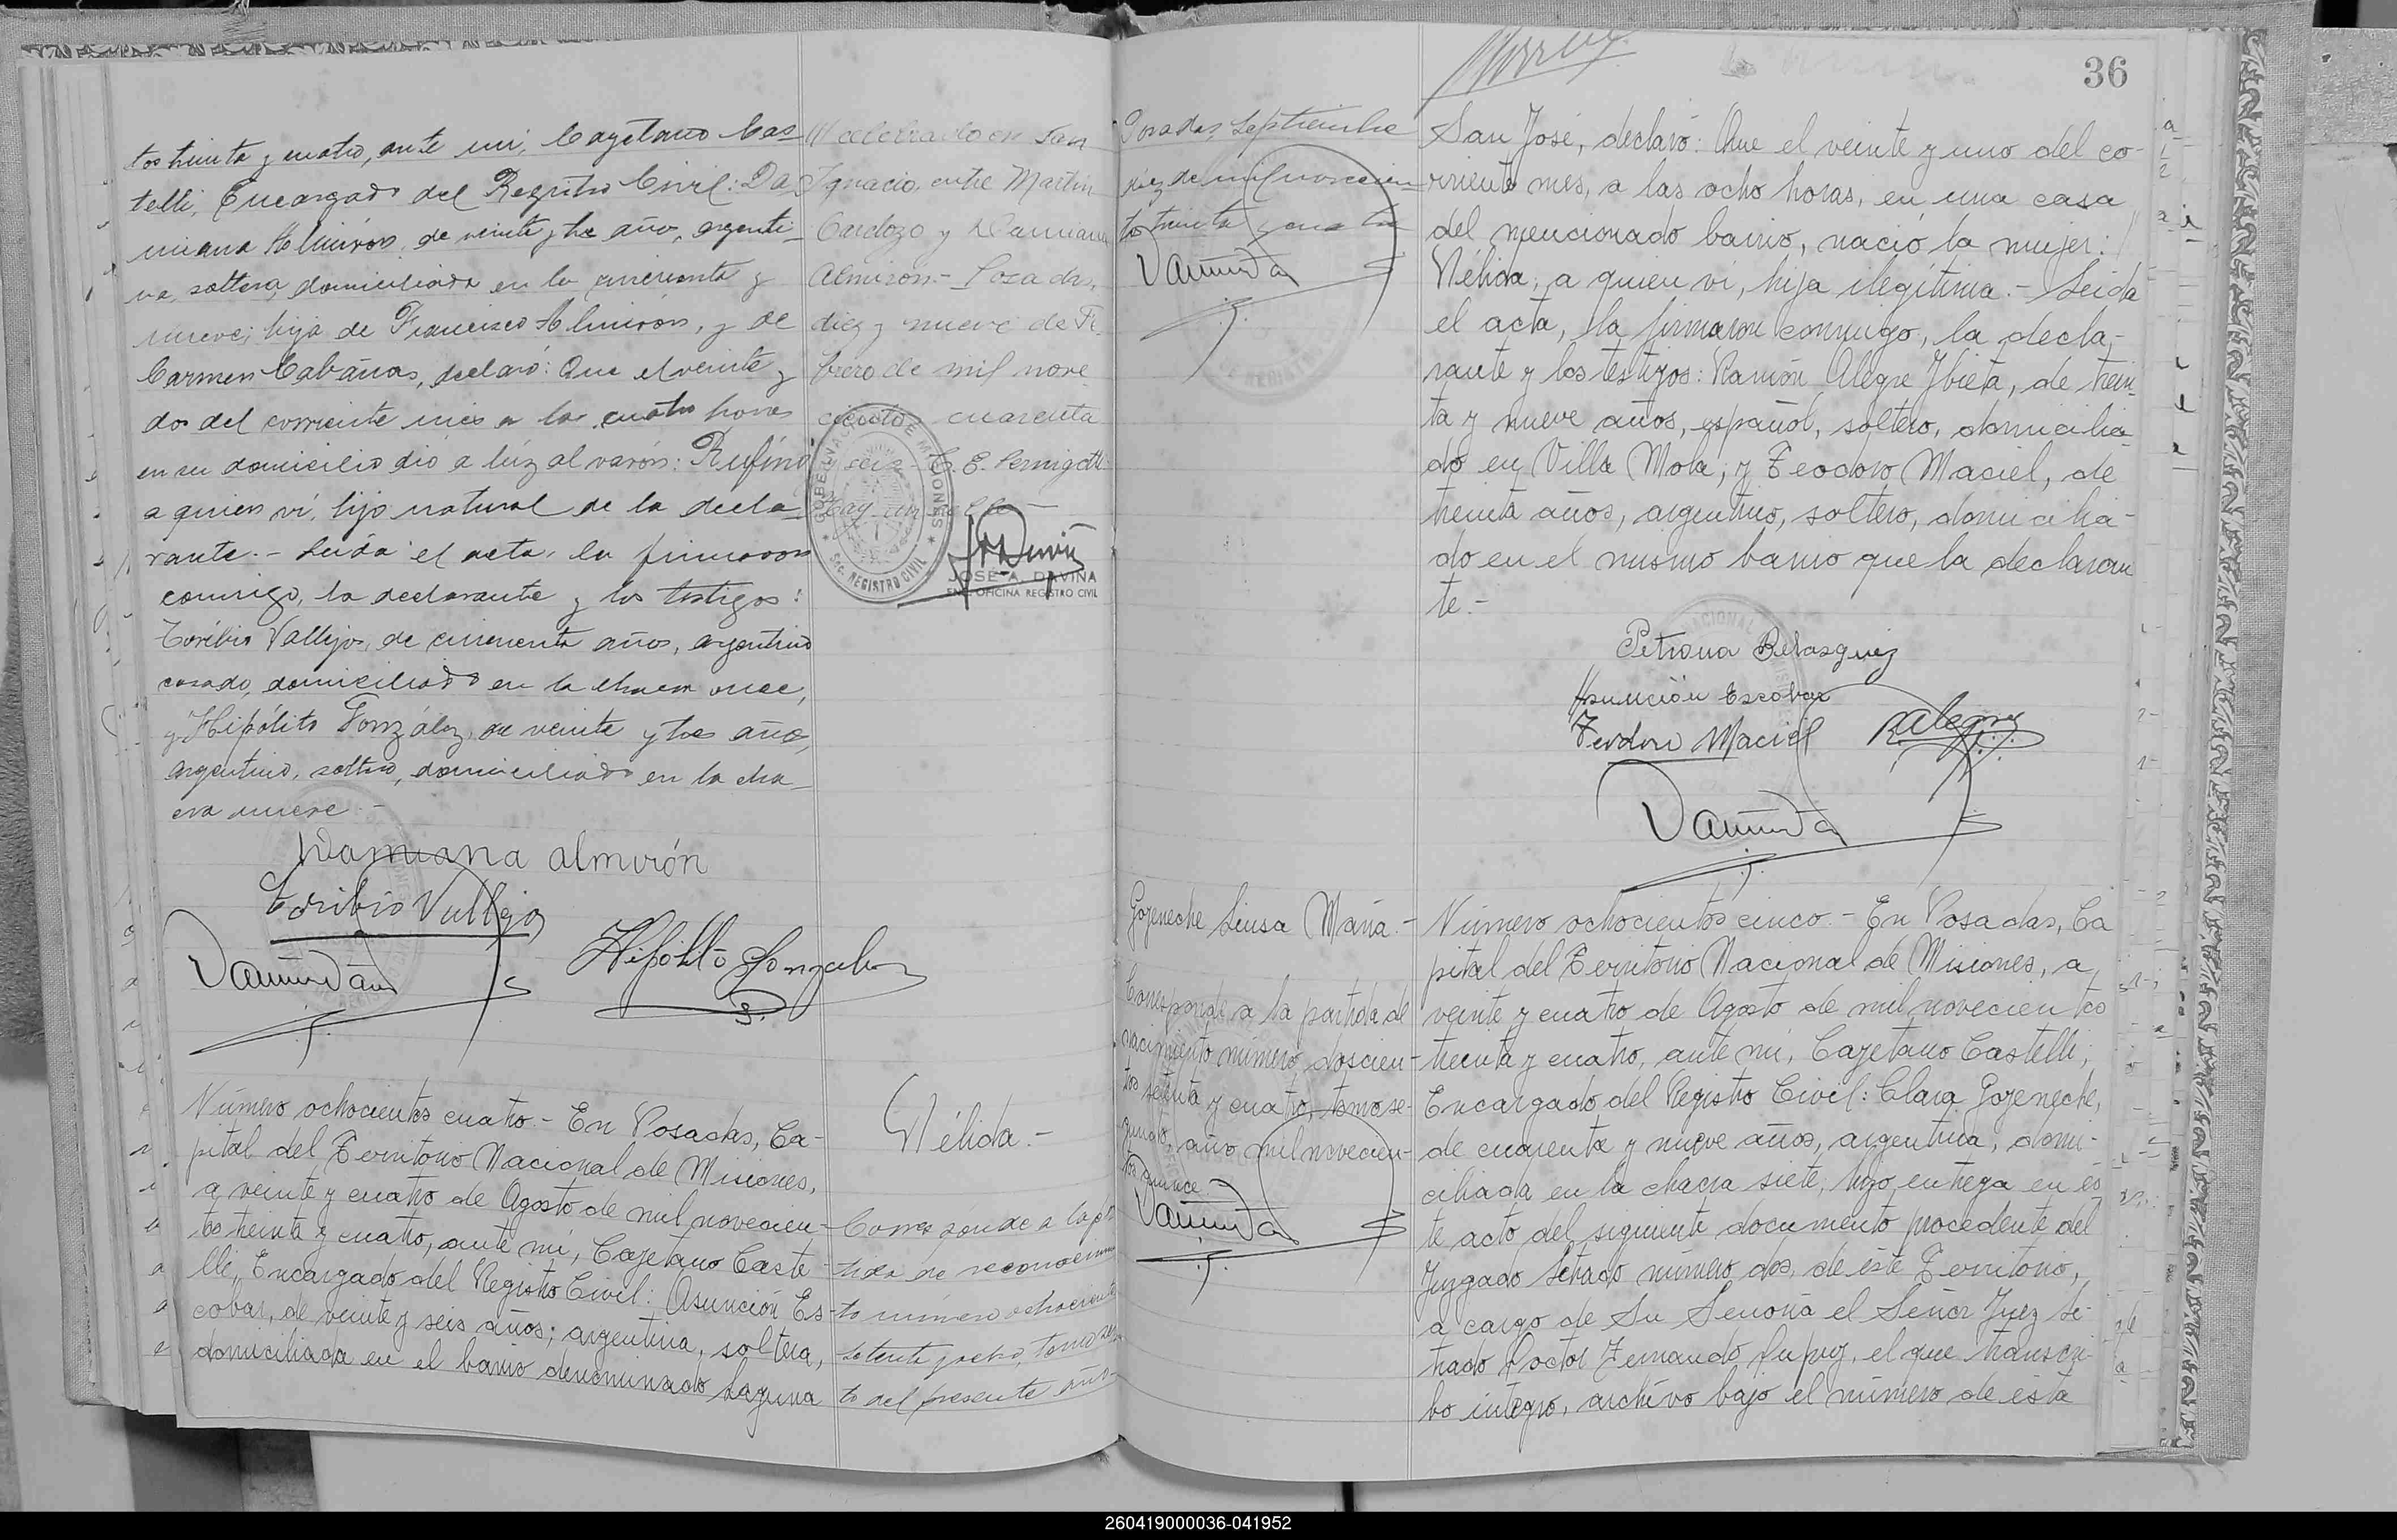 tos treinta y cuatro, ante mi, Cayetano Cas-
telli, Encargado del Registro Civil: Da-
miana Almirón, de veinte y tres años, argenti-
na, soltera, domiciliada en la cincuenta y
nueve; hija de Francisco Almirón, y de
Carmen Cabañas, declaró: Que el veinte y
dos del corriente mes a las cuatro horas
en su domicilio dió a lúz al varón: Rufino
a quien ví, hijo natural de la decla-
rante.- Leída el acta, la firmaron
conmigo, la declarante y los testigos:
Toribio Vallejos, de cincuenta años, argentino
casado, domiciliado en la chacra once,
y Hipólito González, de veinte y tres años,
argentino, soltero, domiciliado en la cha-
cra nueve.-
Damiana almirón
Toribio Vallejo
Hipólito Gonzalez
/// celebrado en San
Ignacio, entre Martin
Cardozo y Damiana
Almiron.- Posadas,
diez y nueve de Fe-
brero de mil nove-
cientos cuarenta
y seis - C. E. Pernigotti
Hay un sello -
GOBERNACIÓN DE MISIONES
Sec. REGISTRO CIVIL
JOSÉ A. DAVIÑA
ENC. OFICINA REGISTRO CIVIL
Número ochocientos cuatro.- En Posadas, Ca-
pital del Territorio Nacional de Misiones,
a veinte y cuatro de Agosto de mil novecien-
tos treinta y cuatro, ante mí, Cayetano Caste-
lli, Encargado del Registro Civil: Asunción Es-
cobar, de veinte y seis años; argentina, soltera,
domiciliada en el barrio denominado Laguna
Nélida.-
Corresponde a la par
tida de reconocimien
to número ochocientos
setenta y ocho, tomo
to del presente año-
36
Posadas, Septiembre
diez de mil novecien-
tos treinta y cuatro
San José, declaró: Que el veinte y uno del co-
rriente mes, a las ocho horas, en una casa
del mencionado barrio, nació la mujer:
Nélida, a quien ví, hija ilegítima.- Leída
el acta, la firmaron conmigo, la decla-
rante y los testigos: Ramón Alegre Ybieta, de trein-
ta y nueve años, español, soltero, domicilia-
do en Villa Mola; y Teodoro Maciel, de
treinta años, argentino, soltero, domicilia-
do en el mismo barrio que la declaran
te.-
Petrona Belasquez
Asunción Escobar
Teodoro Maciel
R Alegre
Goyeneche Luisa María.-
Corresponde a la partida de
nacimiento número doscien-
tos setenta y cuatro, tomo se-
gundo, año mil novecien-
tos quince.
Número ochocientos cinco.- En Posadas, Ca
pital del Territorio Nacional de Misiones, a
veinte y cuatro de Agosto de mil novecientos
treinta y cuatro, ante mi, Cayetano Castelli;
Encargado del Registro Civil: Clara Goyeneche,
de cuarenta y nueve años, argentina, domi-
ciliada en la chacra siete, hizo entrega en es
te acto del siguiente documento procedente del
Juzgado Letrado número dos, de éste Territorio,
a cargo de Su Señoría el Señor Juez Le-
trado Doctor Fernando Dupuy, el que transcri-
bo integro, archivo bajo el número de ésta
260419000036-041952